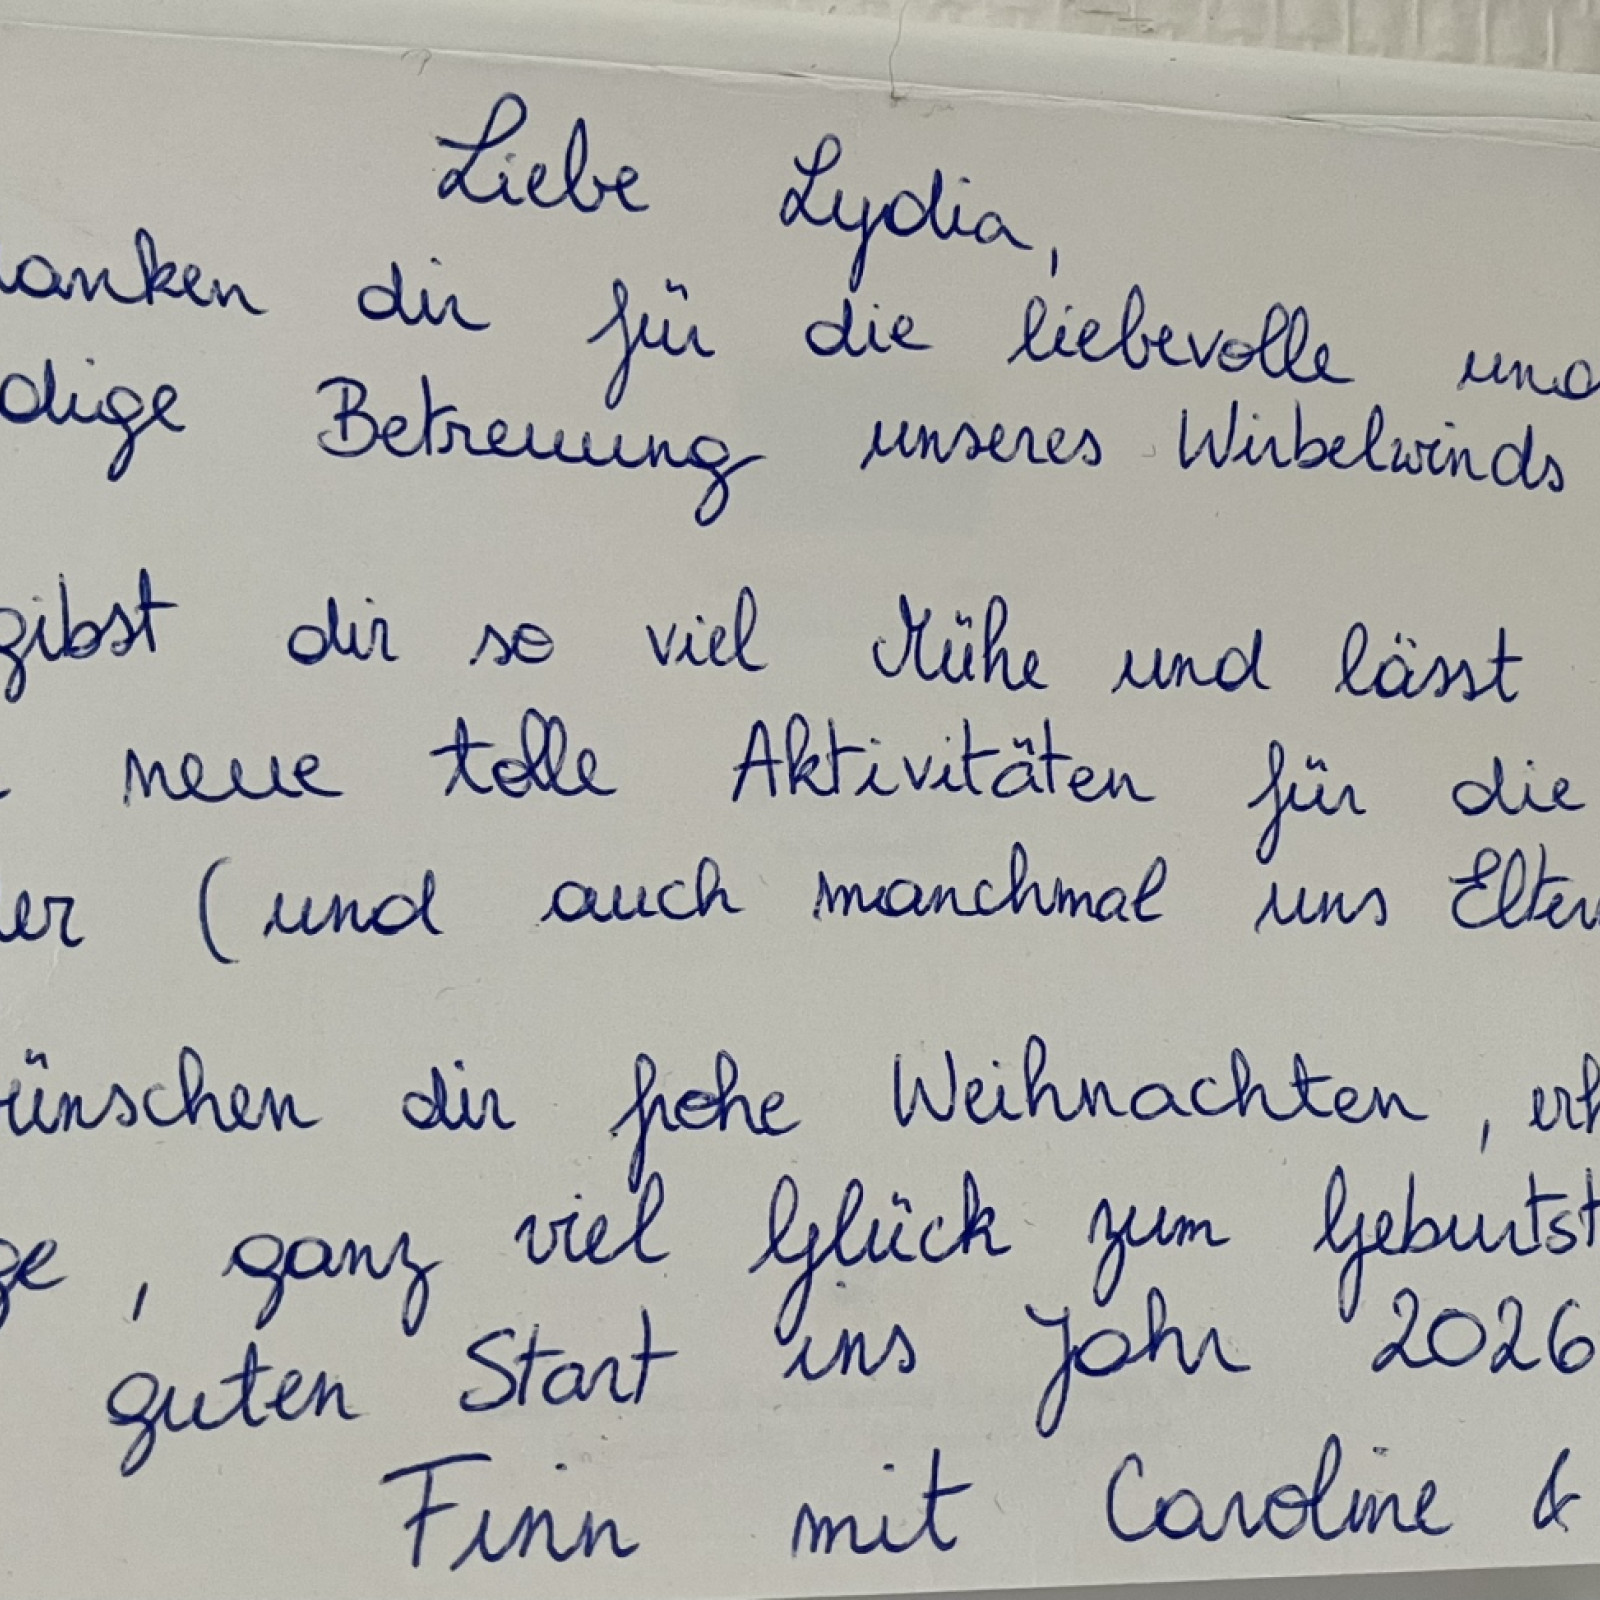 Liebe Lydia,
anken dir für die liebevolle und
dige Betreuung unseres Wirbelwinds
gibst dir so viel Mühe und lässt
neue tolle Aktivitäten für die
er (und auch manchmal uns Eltern
ünschen dir frohe Weihnachten, erh
ge, ganz viel Glück zum Geburtst
guten Start ins Jahr 2026
Finn mit Caroline &